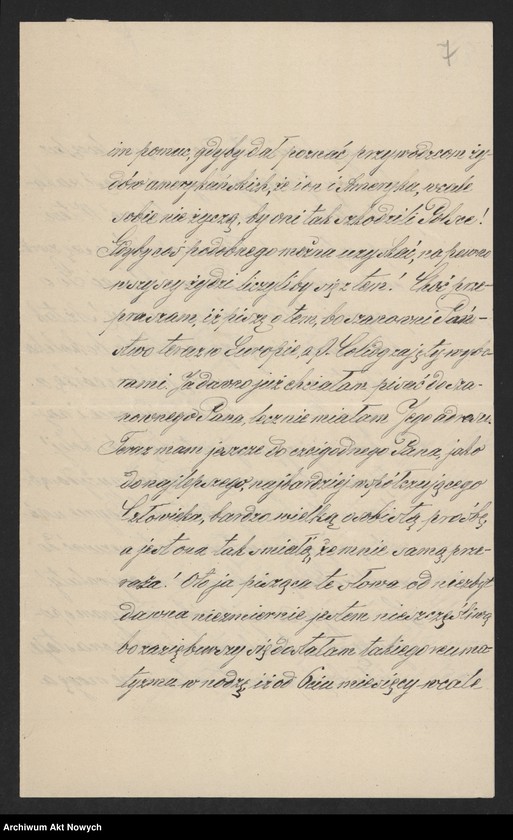 7
im pomoc, gdyby dał poznać przywódcom ży-
dów amerykańskich, że i on i Ameryka, wcale
sobie nie życzą, by oni tak szkodzili Polsce!
Gdyby coś podobnego można uzyskać, na pewno
wszyscy żydzi liczyliby się z tem! Choć prze-
praszam, iż piszę o tem, bo szanowni Pań-
stwo teraz w Europie, a p. Colidg zajęty wybo-
rami. Ja dawno już chciałam pisać do sza-
nownego Pana, lecz nie miałam Jego adresu.
Teraz mam jeszcze do czcigodnego Pana, jako
do najlepszego, najbardziej współczującego
Człowieka, bardzo wielką osobistą prośbę,
a jest ona tak śmiałą, że mnie samą prze-
raża! Oto ja pisząca te słowa od niezbyt
dawna niezmiernie jestem nieszczęśliwą
bo zaziębiwszy się dostałam takiego reuma-
tyzmu w nodze, iż od 6ciu miesięcy wcale
Archiwum Akt Nowych